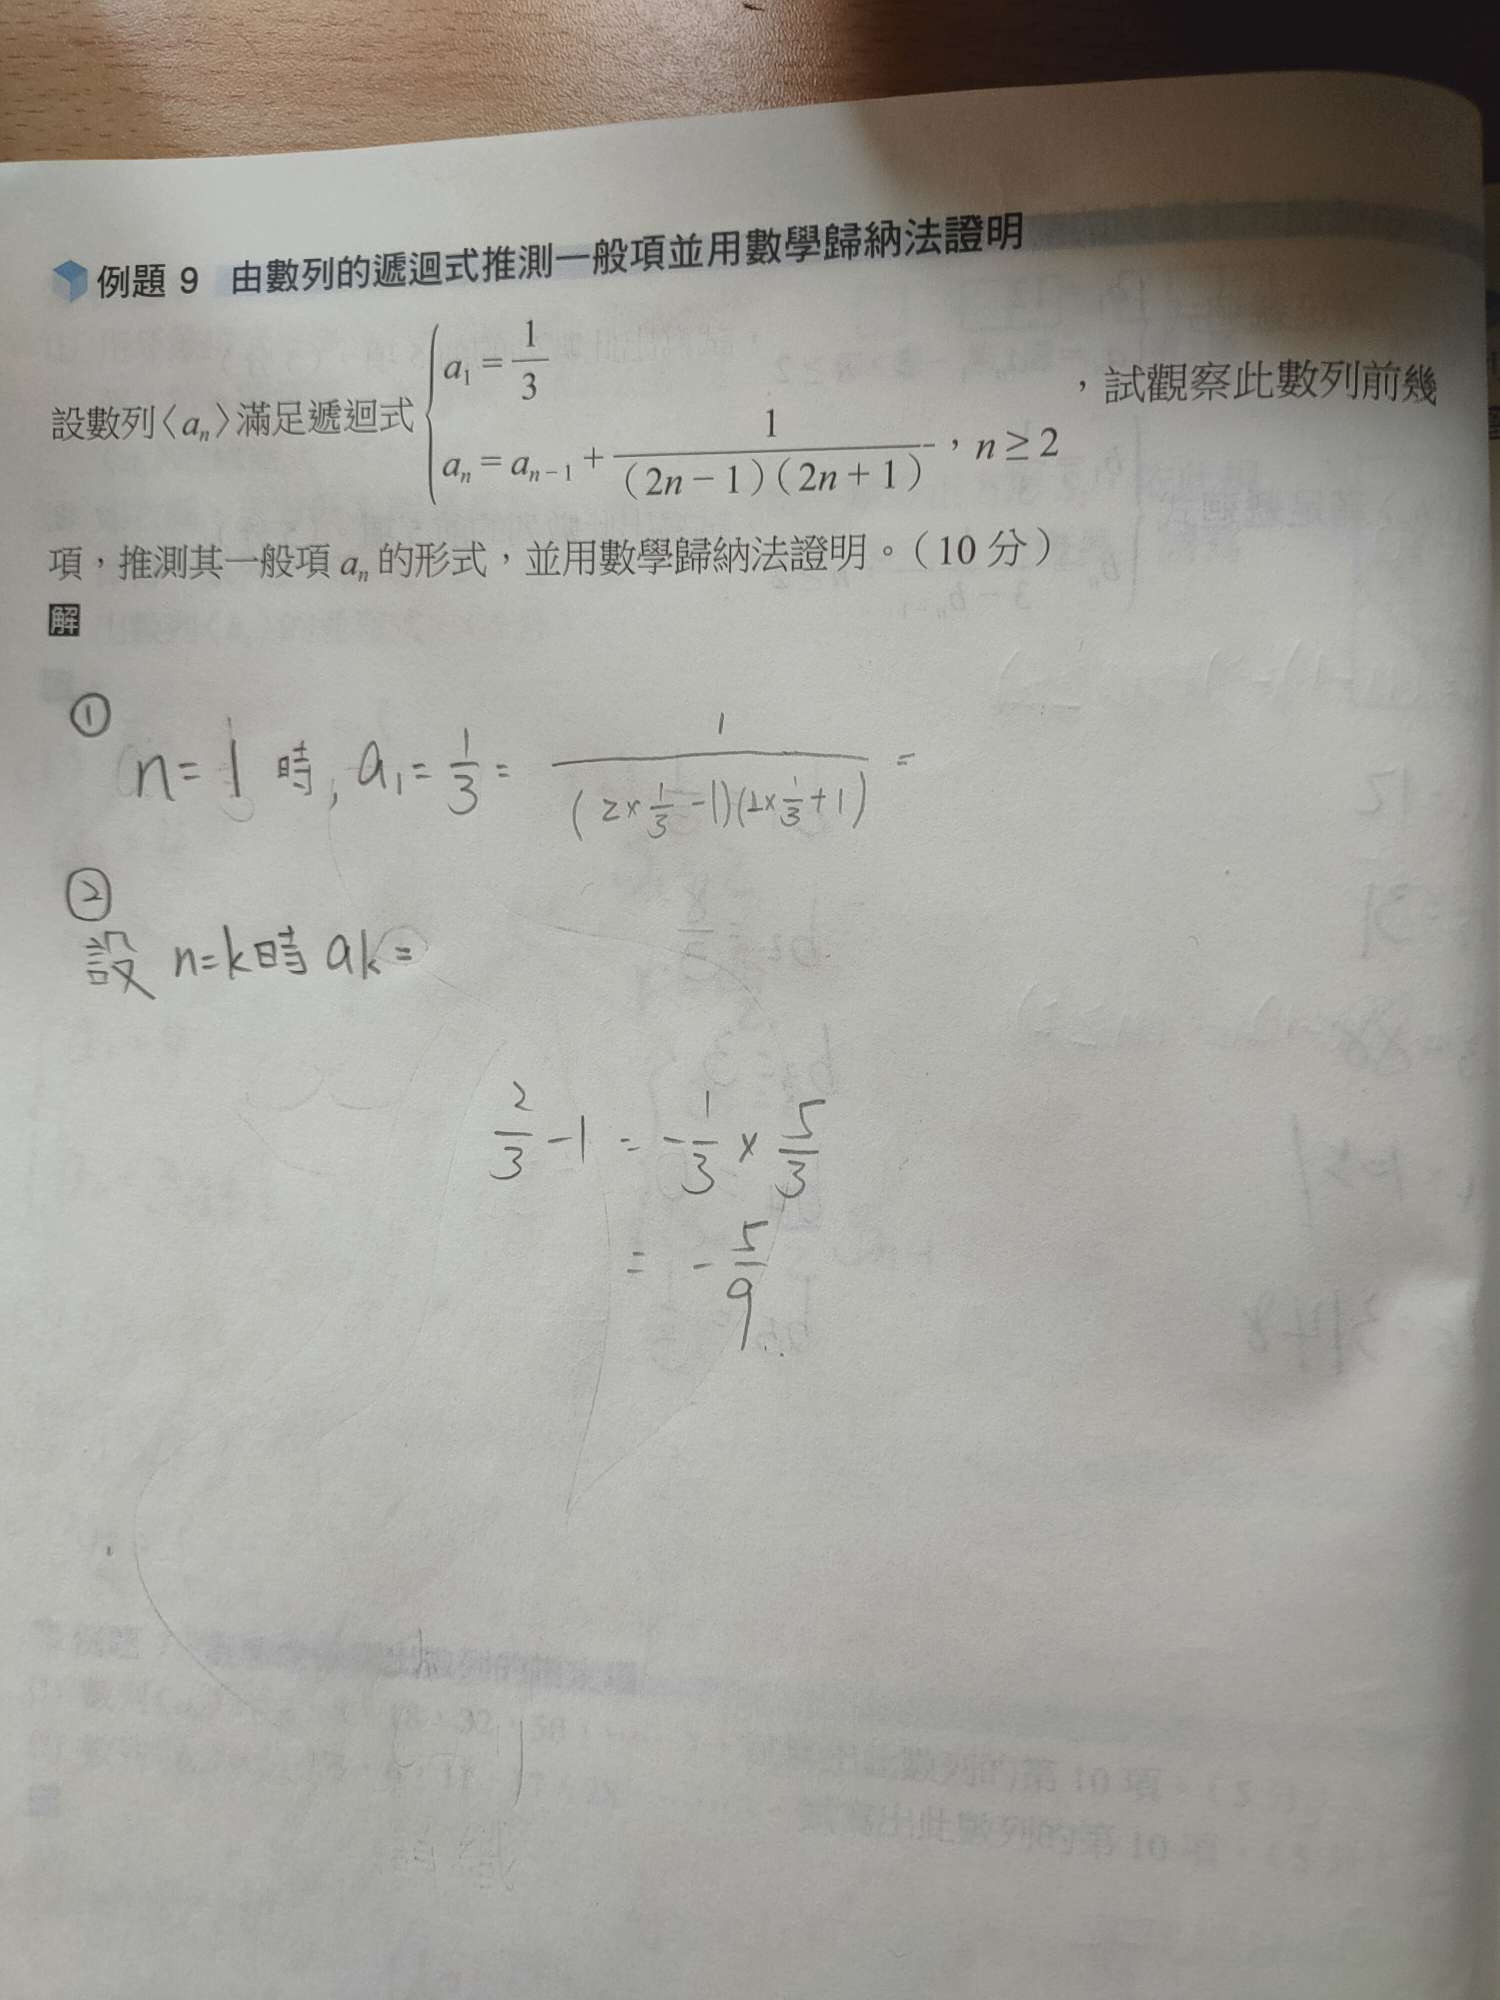 例題 9 由數列的遞迴式推測一般項並用數學歸納法證明
設數列〈aₙ〉滿足遞迴式 { a₁ = 1/3
aₙ = aₙ₋₁ + 1/((2n−1)(2n+1)),n ≥ 2 ,試觀察此數列前幾
項,推測其一般項 aₙ 的形式,並用數學歸納法證明。(10 分)
解
①
n = 1 時, a₁ = 1/3 = 1/((2×1/3 −1)(2×1/3 +1)) =
②
設 n=k時 ak =
2/3 −1 = −1/3 × 5/3
= −5/9